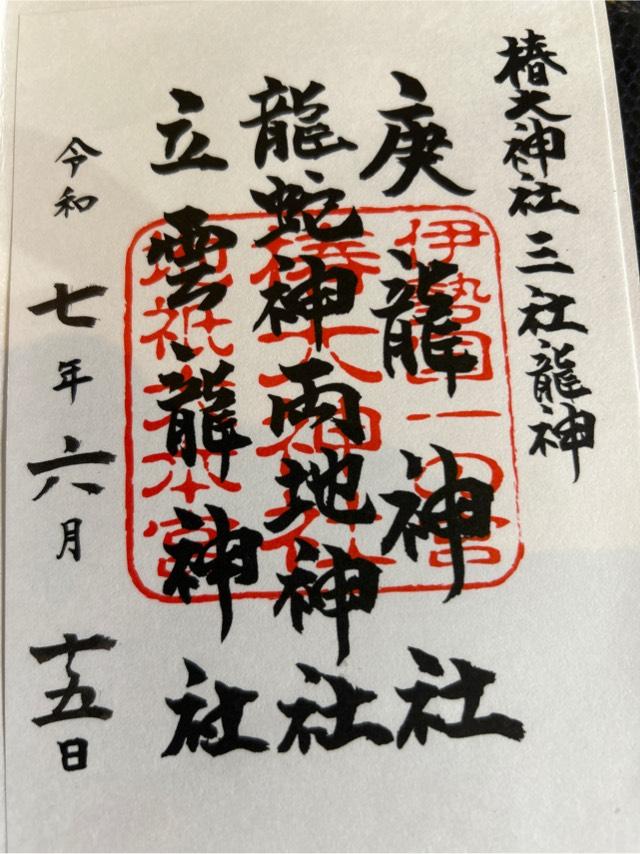 椿大神社三社龍神
庚龍神社
龍蛇神両地神社
立雲龍神社
令和七年六月十五日
伊勢国一の宮
椿大神社
地祇大本宮